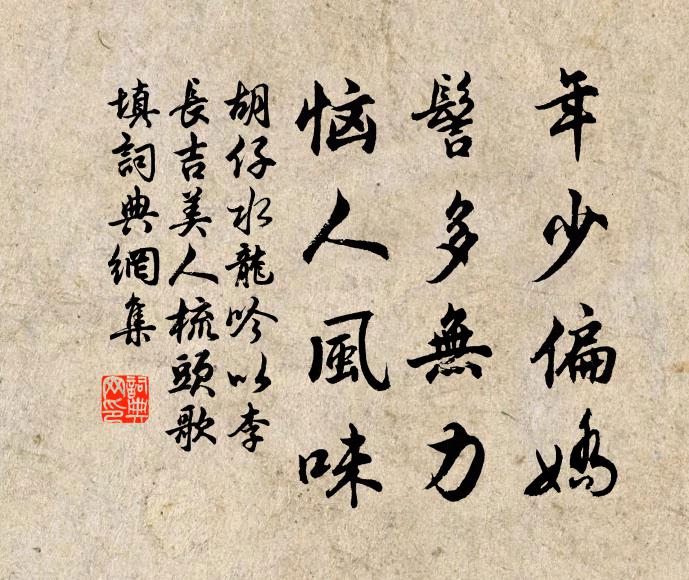 年少偏嬌
髻多無力
惱人風味
胡仔水龍吟以李
長吉美人梳頭歌
填詞典網集
詞典
网印